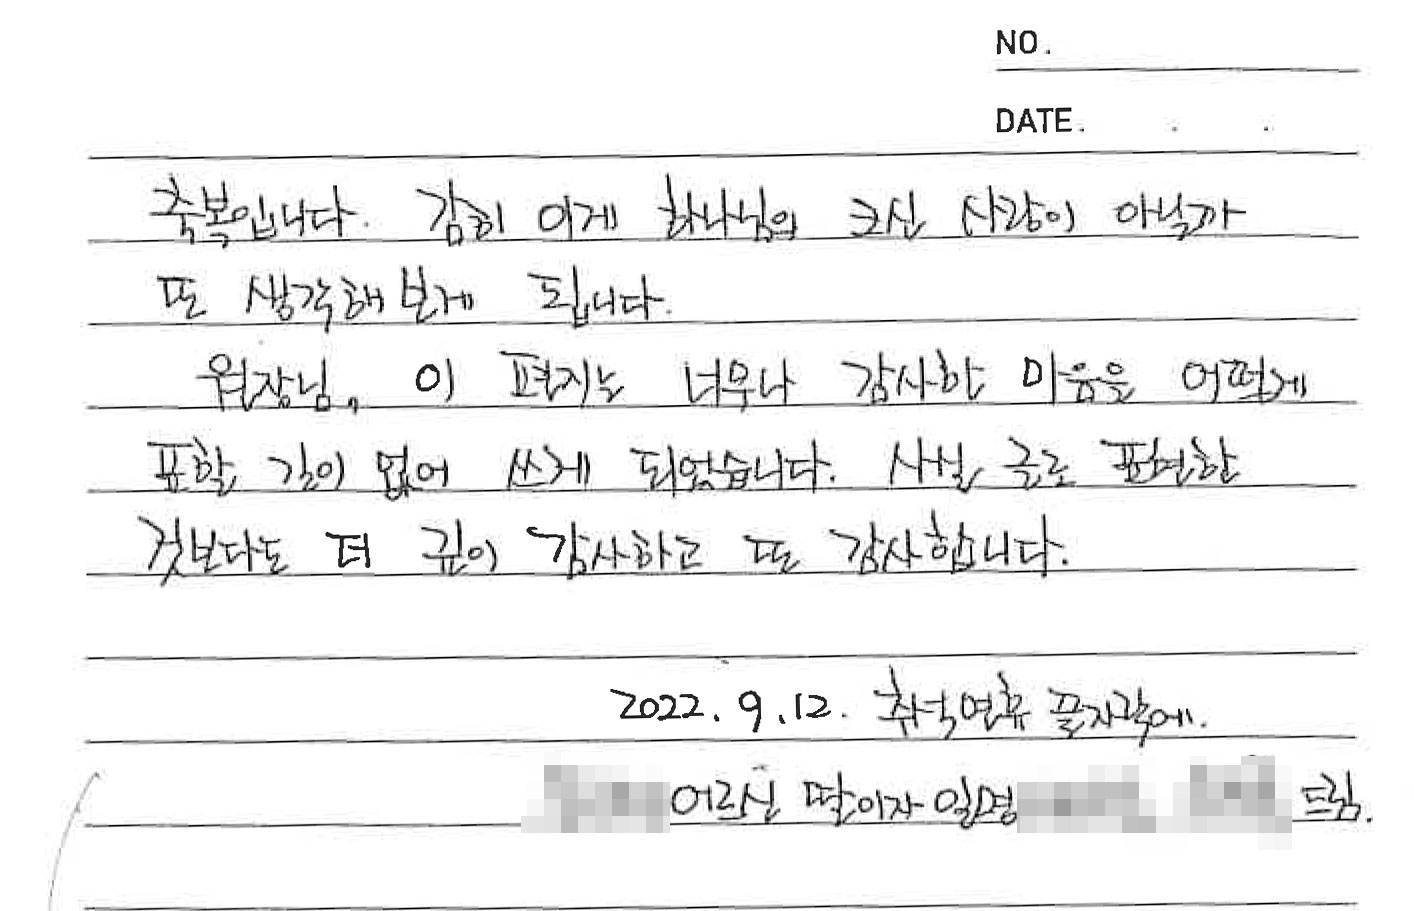 NO.
DATE. . .
축복입니다. 감히 이게 하나님의 크신 사랑이 아닐까
또 생각해보게 됩니다.
원장님, 이 편지는 너무나 감사한 마음을 어떻게
표할 길이 없어 쓰게 되었습니다. 사실 글로 표현한
것보다도 더 깊이 감사하고 또 감사합니다.
2022. 9. 12. 추석연휴 끝자락에.
어르신 딸이자 일명 드림.